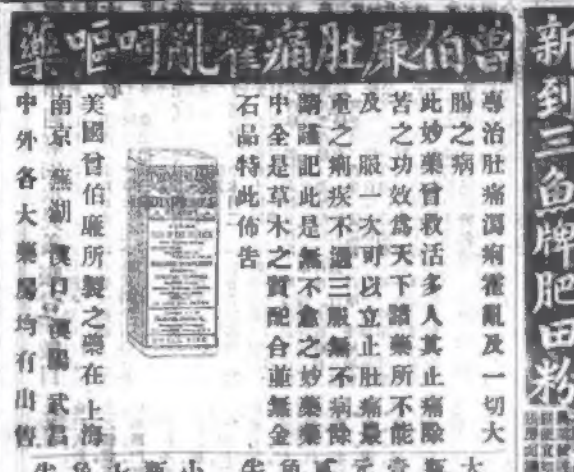 曾伯廉肚痛霍亂呵嘔藥
專治肚痛瀉痢霍亂及一切大
腸之病
此妙藥曾救活多人其止痛除
苦之功效為天下諸藥所不能
及 服一次可以立止肚痛最
重之痢疾不過三服無不病除
請謹記此是無不愈之妙藥藥
中全是草木之質配合並無金
石品特此佈告
美國曾伯廉所製之藥在上海
南京蕪湖漢口漢陽武昌
中外各大藥房均有出售
新到三魚牌肥田粉